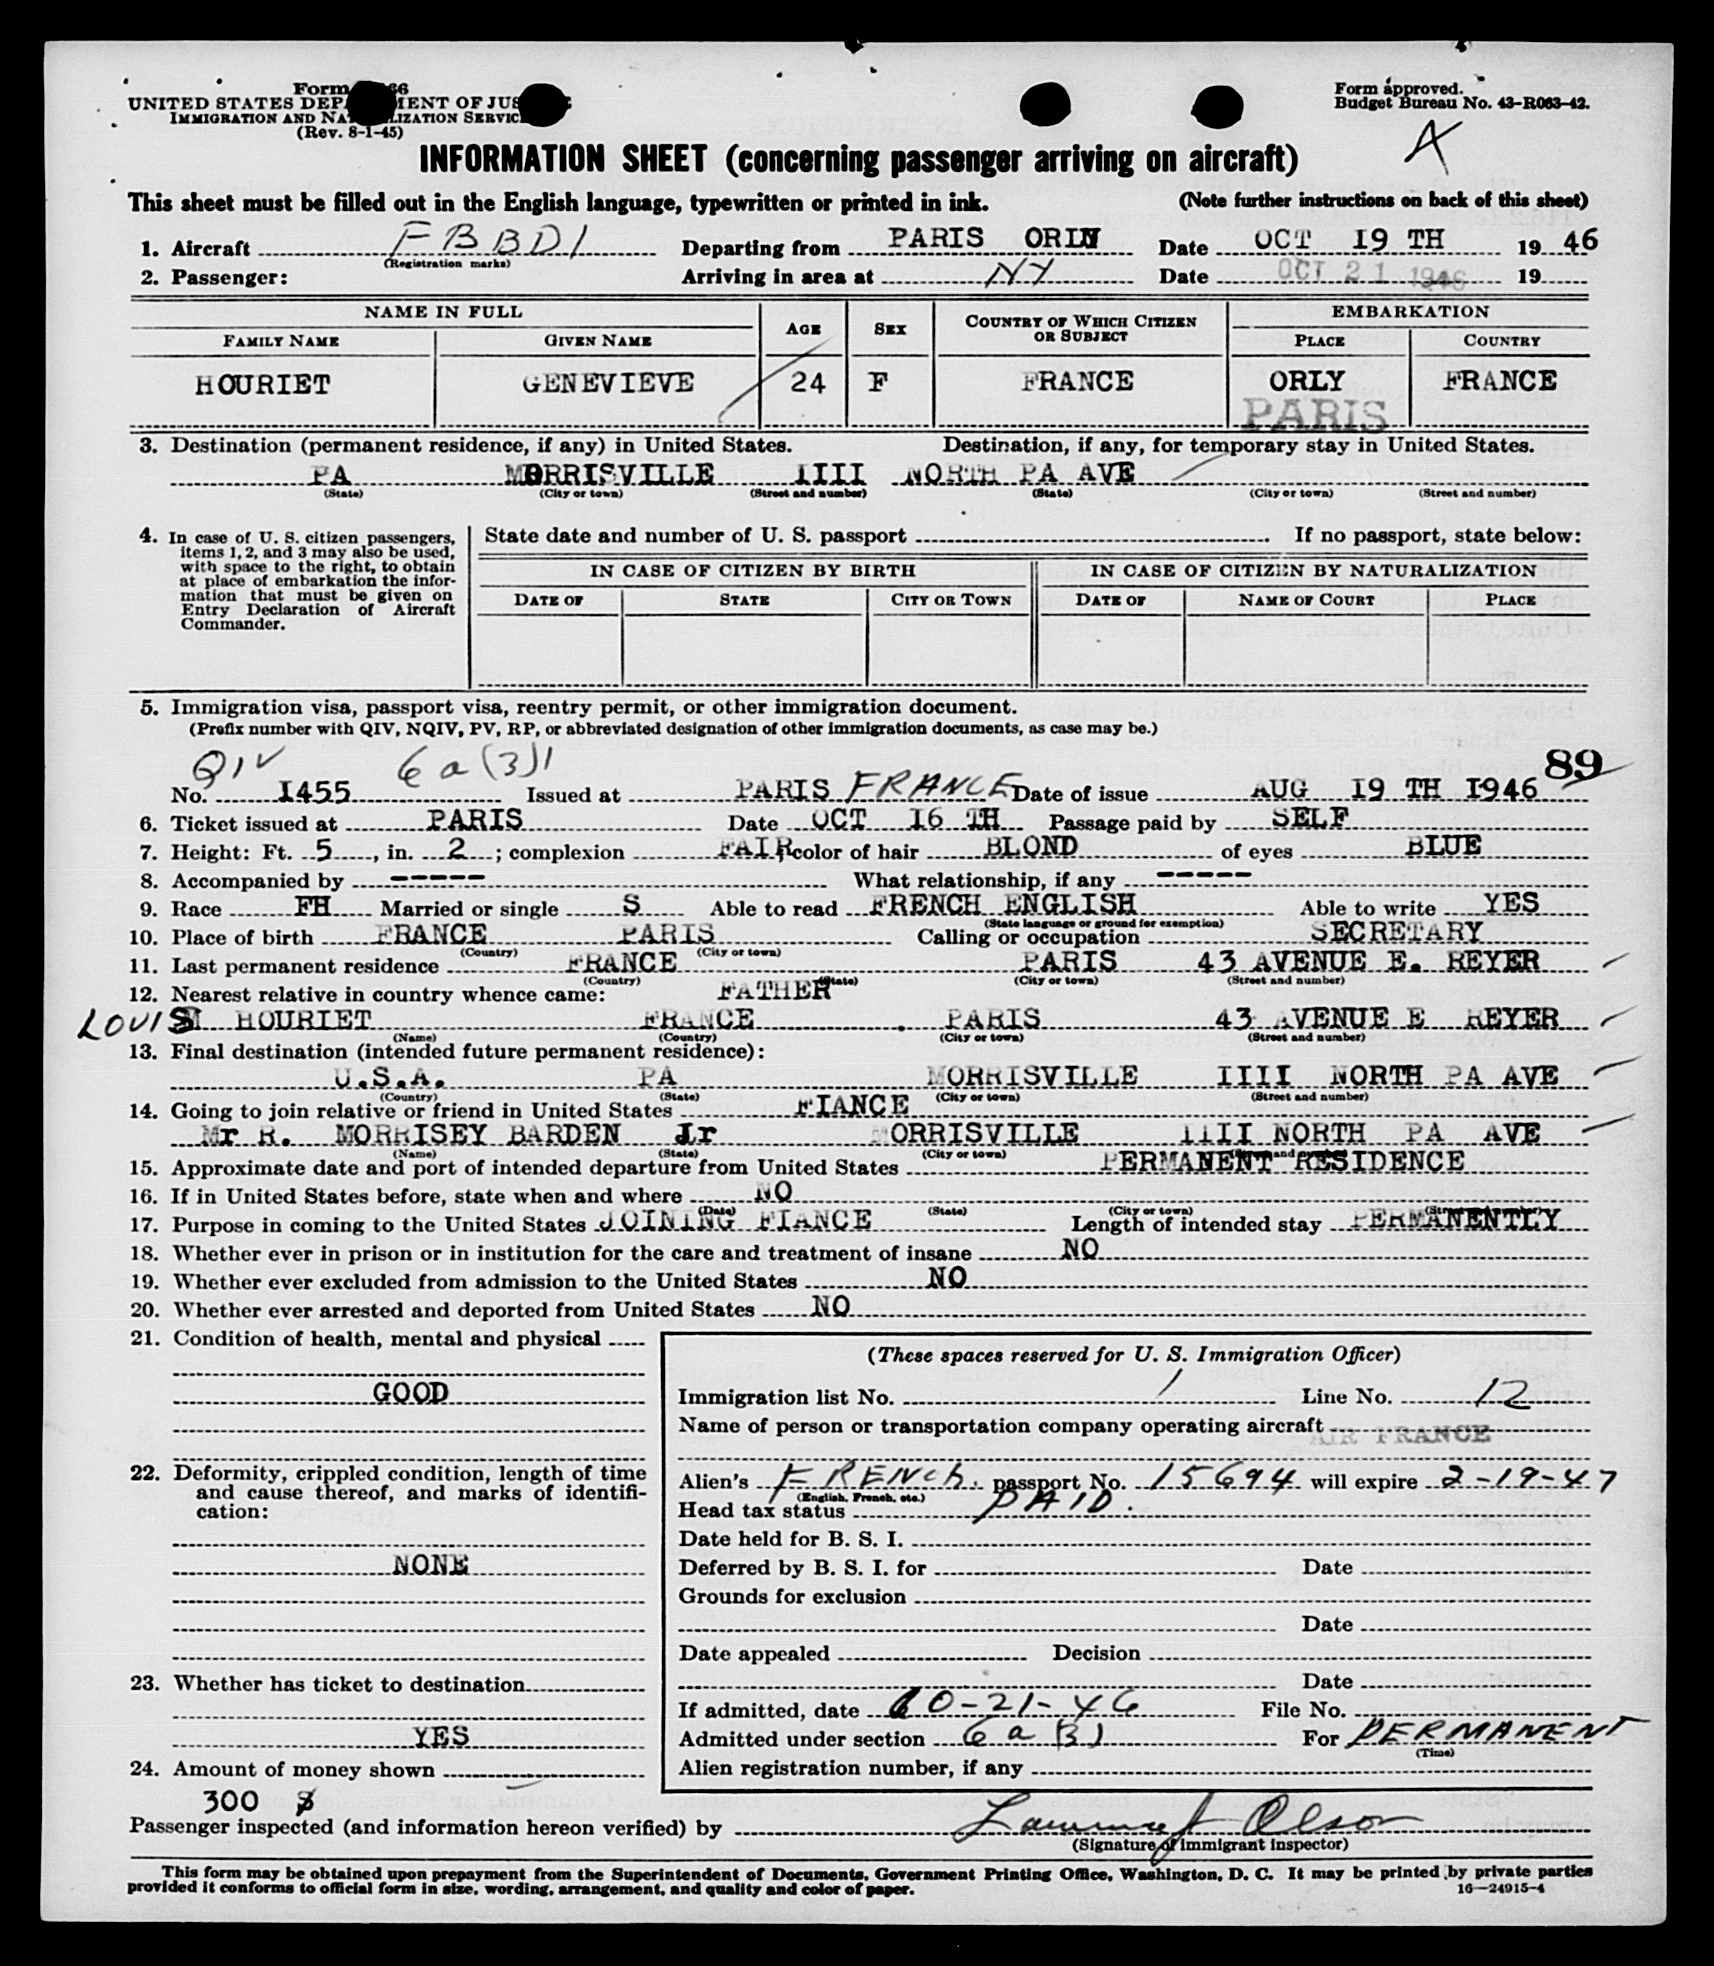 Form
UNITED STATES DEPARTMENT OF JUSTICE
IMMIGRATION AND NATURALIZATION SERVICE
(Rev. 8-1-45)
Form approved.
Budget Bureau No. 43-R063-42.
A
INFORMATION SHEET (concerning passenger arriving on aircraft)
This sheet must be filled out in the English language, typewritten or printed in ink. (Note further instructions on back of this sheet)
1. Aircraft FBBDI Departing from PARIS ORLY Date OCT 19 TH 19 46
(Registration marks)
2. Passenger: Arriving in area at NY Date OCT 21 1946 19
NAME IN FULL AGE SEX COUNTRY OF WHICH CITIZEN OR SUBJECT EMBARKATION
FAMILY NAME GIVEN NAME PLACE COUNTRY
HOURIET GENEVIEVE 24 F FRANCE ORLY FRANCE
PARIS
3. Destination (permanent residence, if any) in United States. Destination, if any, for temporary stay in United States.
PA MORRISVILLE IIII NORTH PA AVE
(State) (City or town) (Street and number) (State) (City or town) (Street and number)
4. In case of U. S. citizen passengers, items 1, 2, and 3 may also be used, with space to the right, to obtain at place of embarkation the information that must be given on Entry Declaration of Aircraft Commander.
State date and number of U. S. passport If no passport, state below:
IN CASE OF CITIZEN BY BIRTH IN CASE OF CITIZEN BY NATURALIZATION
DATE OF STATE CITY OR TOWN DATE OF NAME OF COURT PLACE
5. Immigration visa, passport visa, reentry permit, or other immigration document.
(Prefix number with QIV, NQIV, PV, RP, or abbreviated designation of other immigration documents, as case may be.)
QIV 6a(3)1 89
No. I455 Issued at PARIS FRANCE Date of issue AUG I9 TH I946
6. Ticket issued at PARIS Date OCT I6 TH Passage paid by SELF
7. Height: Ft. 5, in. 2; complexion FAIR; color of hair BLOND of eyes BLUE
8. Accompanied by ----- What relationship, if any -----
9. Race FH Married or single S Able to read FRENCH ENGLISH Able to write YES
(State language or ground for exemption)
10. Place of birth FRANCE PARIS Calling or occupation SECRETARY
(Country) (City or town)
11. Last permanent residence FRANCE PARIS 43 AVENUE E. REYER
(Country) (State) (City or town) (Street and number)
12. Nearest relative in country whence came: FATHER
LOUIS HOURIET FRANCE PARIS 43 AVENUE E REYER
(Name) (Country) (City or town) (Street and number)
13. Final destination (intended future permanent residence):
U.S.A. PA MORRISVILLE IIII NORTH PA AVE
(Country) (State) (City or town) (Street and number)
14. Going to join relative or friend in United States FIANCE
Mr R. MORRISEY BARDEN Jr MORRISVILLE IIII NORTH PA AVE
(Name) (State) (City or town) (Street and number)
15. Approximate date and port of intended departure from United States PERMANENT RESIDENCE
16. If in United States before, state when and where NO
(Date) (State) (City or town) (Street and number)
17. Purpose in coming to the United States JOINING FIANCE Length of intended stay PERMANENTLY
18. Whether ever in prison or in institution for the care and treatment of insane NO
19. Whether ever excluded from admission to the United States NO
20. Whether ever arrested and deported from United States NO
21. Condition of health, mental and physical
GOOD
22. Deformity, crippled condition, length of time and cause thereof, and marks of identification:
NONE
23. Whether has ticket to destination
YES
24. Amount of money shown
300 $
(These spaces reserved for U. S. Immigration Officer)
Immigration list No. 1 Line No. 12
Name of person or transportation company operating aircraft AIR FRANCE
Alien's FRENCH passport No. 15694 will expire 2-19-47
(English, French, etc.)
Head tax status PAID.
Date held for B. S. I.
Deferred by B. S. I. for Date
Grounds for exclusion
Date
Date appealed Decision
Date
If admitted, date 10-21-46 File No.
Admitted under section 6a(3)1 For PERMANENT
(Time)
Alien registration number, if any
Passenger inspected (and information hereon verified) by Lawrence J Olson
(Signature of immigrant inspector)
This form may be obtained upon prepayment from the Superintendent of Documents, Government Printing Office, Washington, D. C. It may be printed by private parties
provided it conforms to official form in size, wording, arrangement, and quality and color of paper. 16—24915-4